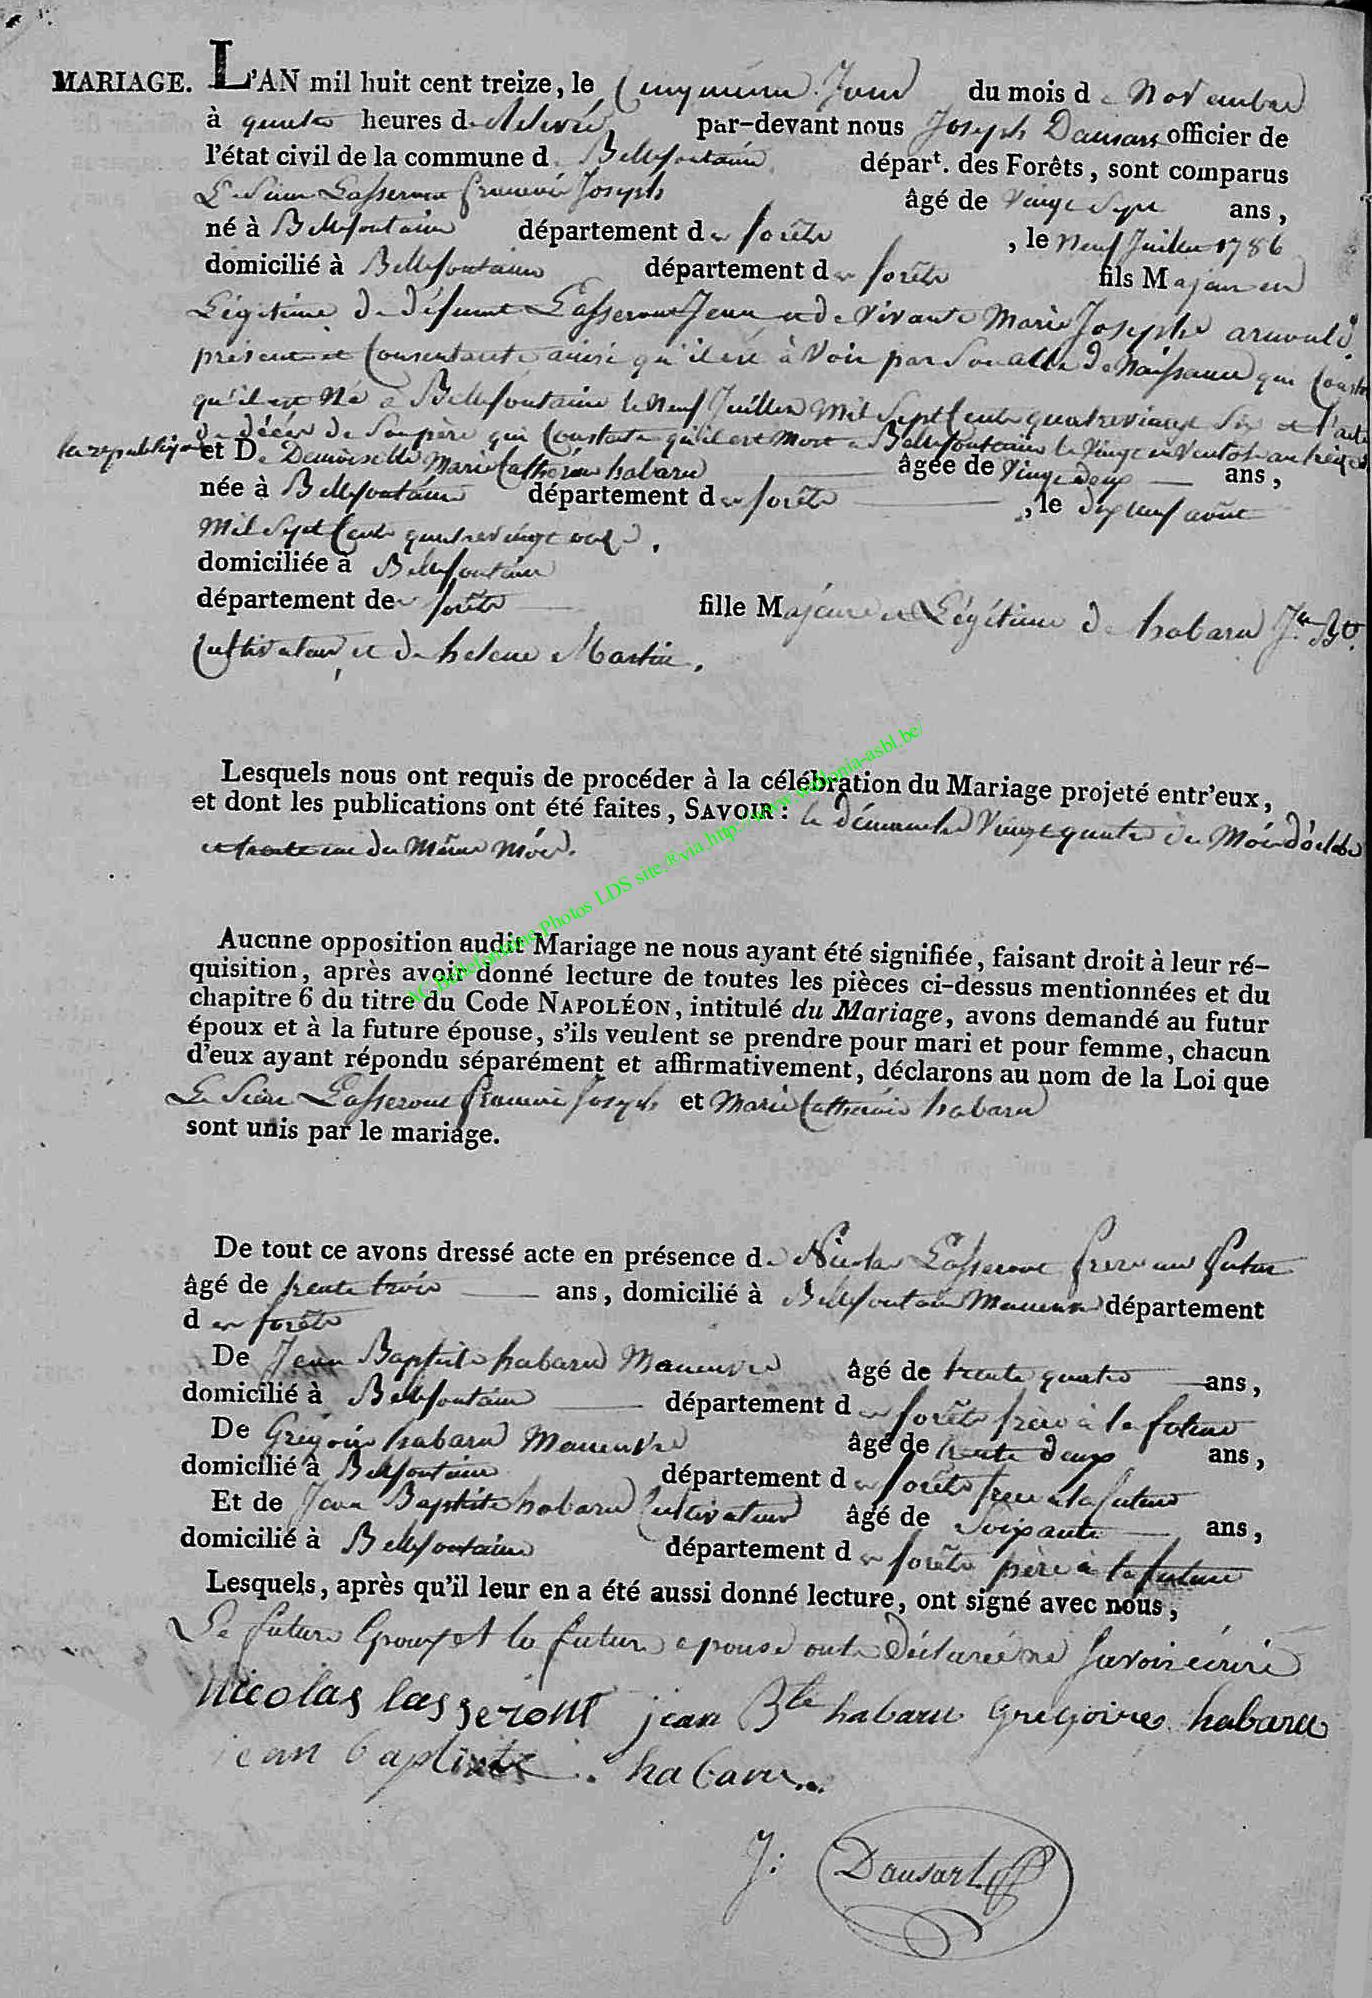 MARIAGE. L'AN mil huit cent treize, le Cinquième Jour du mois de Novembre
à quatre heures de relevée par-devant nous Joseph Dausart officier de
l'état civil de la commune de Bellefontaine départ. des Forêts, sont comparus
Le Sieur Lasseront François Joseph âgé de Vingt Sept ans,
né à Bellefontaine département des forêts, le Neuf Juillet 1786
domicilié à Bellefontaine département des forêts fils Majeur et
Légitime de défunt Lasseront Jean et de vivante Marie Josephe arnould
présente et Consentante ainsi qu'il est à Voir par Son acte de Naissance qui Constate
qu'il est Né à Bellefontaine le Neuf Juillet Mil Sept Cent quatrevingt Six et l'acte
de décès de Son père qui Constate qu'il est mort à Bellefontaine le Vingt un Ventose an treize de
la republique et De Demoiselle Marie Catherine habaru âgée de Vingt deux ans,
née à Bellefontaine département des forêts, le dix neuf août
Mil Sept Cent quatrevingt onze,
domiciliée à Bellefontaine
département des forêts fille Majeure et Légitime de habaru Jn Bte
Cultivateur, et de helene Martin,
Lesquels nous ont requis de procéder à la célébration du Mariage projeté entr'eux,
et dont les publications ont été faites, SAVOIR: le dimanche Vingt quatre du Mois d'octobre
et trente un du Même Mois.
Aucune opposition audit Mariage ne nous ayant été signifiée, faisant droit à leur ré-
quisition, après avoir donné lecture de toutes les pièces ci-dessus mentionnées et du
chapitre 6 du titre du Code NAPOLÉON, intitulé du Mariage, avons demandé au futur
époux et à la future épouse, s'ils veulent se prendre pour mari et pour femme, chacun
d'eux ayant répondu séparément et affirmativement, déclarons au nom de la Loi que
Le Sieur Lasseront François Joseph et Marie Catherine habaru
sont unis par le mariage.
De tout ce avons dressé acte en présence de Nicolas Lasseront frere au futur
âgé de trente trois ans, domicilié à Bellefontaine Maneuvre département
des forêts
De Jean Baptiste habaru Maneuvre âgé de trente quatre ans,
domicilié à Bellefontaine département des forêts frère à la future
De Grégoire habaru Maneuvre âgé de trente deux ans,
domicilié à Bellefontaine département des forêts frere à la future
Et de Jean Baptiste habaru Cultivateur âgé de Soixante ans,
domicilié à Bellefontaine département des forêts père à la future
Lesquels, après qu'il leur en a été aussi donné lecture, ont signé avec nous,
Le futur Epoux et la future epouse ont Déclaré ne Savoir écrire
nicolas lasseront jean Bte habaru gregoires habaru
jean baptiste habaru
J: Dausart
AC Bellefontaine Photos LDS site R via http://www.wallonia-asbl.be/